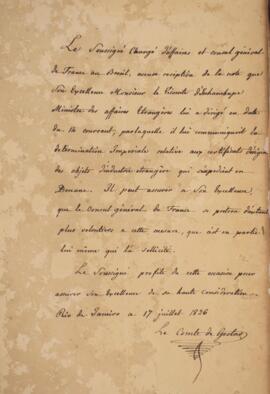 Le Soussigné Chargé d'affaires et consul général
de France au Brésil, accuse réception de la note que
Son Excellence Monsieur le Vicomte d'Inhambupe
Ministre des affaires Etrangères lui a dirigé en date
du 14 courant; par laquelle il lui communiquait la
détermination Impériale relative aux certificats d'origine
des objets d'industrie étrangère qui s'expédient en
Douane. Il peut assurer à Son Excellence
que le Consul général de France se prêtera d'autant
plus volontiers à cette mesure, que c'est en partie
lui même qui l'a sollicité.
Le Soussigné profite de cette occasion pour
assurer Son Excellence de sa haute considération.
Rio de Janeiro a 17 juillet 1826
Le Comte de Gestas